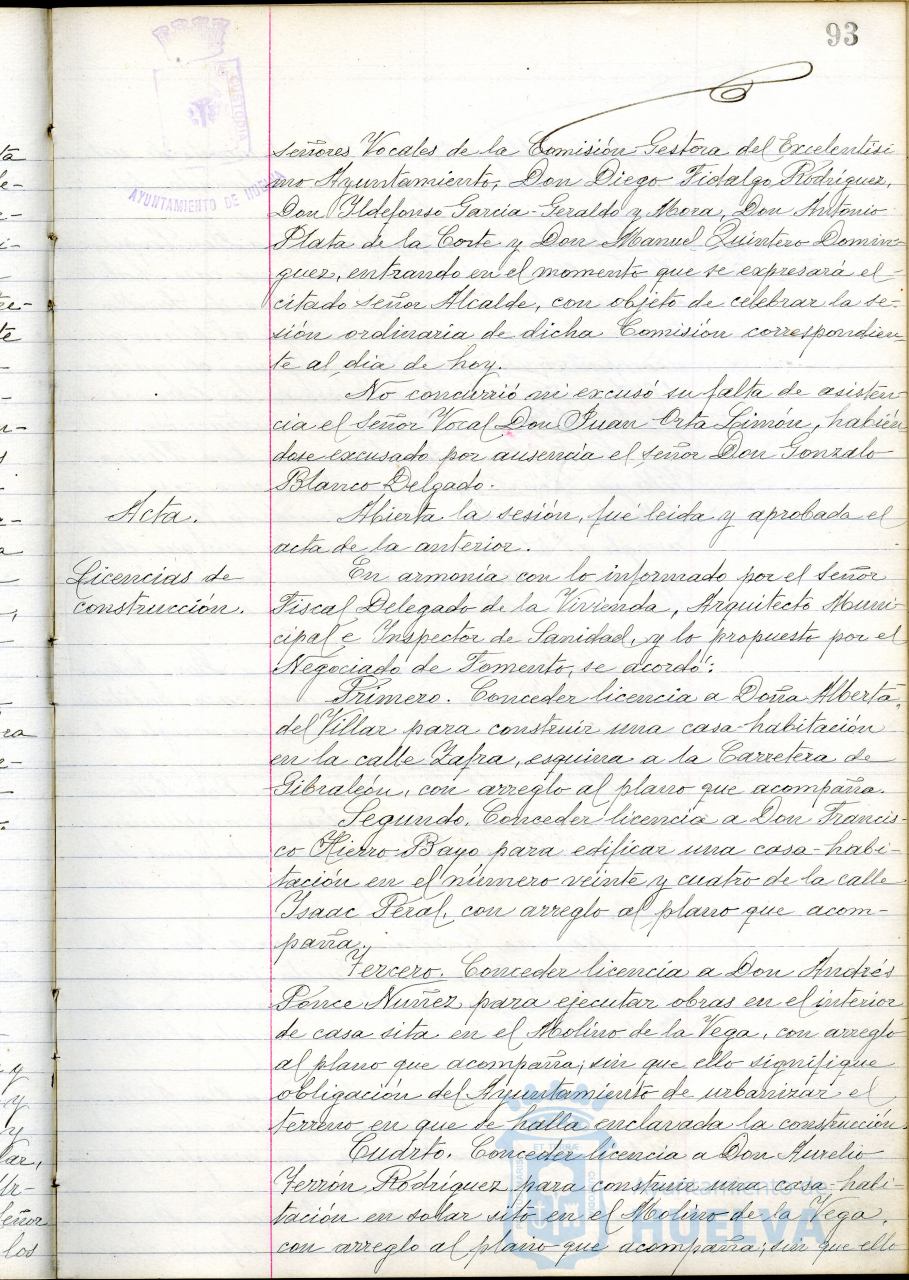 93
CUSTODIA
AYUNTAMIENTO DE HUELVA
señores Vocales de la Comisión Gestora del Excelentísi
mo Ayuntamiento, Don Diego Fidalgo Rodríguez,
Don Yldefonso García-Geraldo y Mora, Don Antonio
Plata de la Corte y Don Manuel Quintero Domín-
guez, entrando en el momento que se expresará el
citado señor Alcalde, con objeto de celebrar la se-
sión ordinaria de dicha Comisión correspondien-
te al día de hoy.
No concurrió ni excusó su falta de asisten
cia el Señor Vocal Don Juan Orta Limón, habién
dose excusado por ausencia el señor Don Gonzalo
Blanco Delgado.
Acta.
Abierta la sesión, fué leida y aprobada el
acta de la anterior.
Licencias de
construcción.
En armonía con lo informado por el Señor
Fiscal Delegado de la Vivienda, Arquitecto Muni
cipal e Inspector de Sanidad, y lo propuesto por el
Negociado de Fomento, se acordó:
Primero. Conceder licencia a Doña Alberta
del Villar para construir una casa-habitación
en la calle Zafra, esquina a la Carretera de
Gibraleón, con arreglo al plano que acompaña.
Segundo. Conceder licencia a Don Francis-
co Hierro Bayo para edificar una casa-habi-
tación en el número veinte y cuatro de la calle
Ysaac Peral, con arreglo al plano que acom-
paña.
Tercero. Conceder licencia a Don Andrés
Ponce Nuñez para ejecutar obras en el interior
de casa sita en el Molino de la Vega, con arreglo
al plano que acompaña; sin que ello signifique
obligación del Ayuntamiento de urbanizar el
terreno en que se halla enclavada la construcción.
Cuarto. Conceder licencia a Don Aurelio
Terrón Rodríguez para construir una casa-habi-
tación en solar sito en el Molino de la Vega,
con arreglo al plano que acompaña; sin que ello
Ayuntamiento de
HUELVA